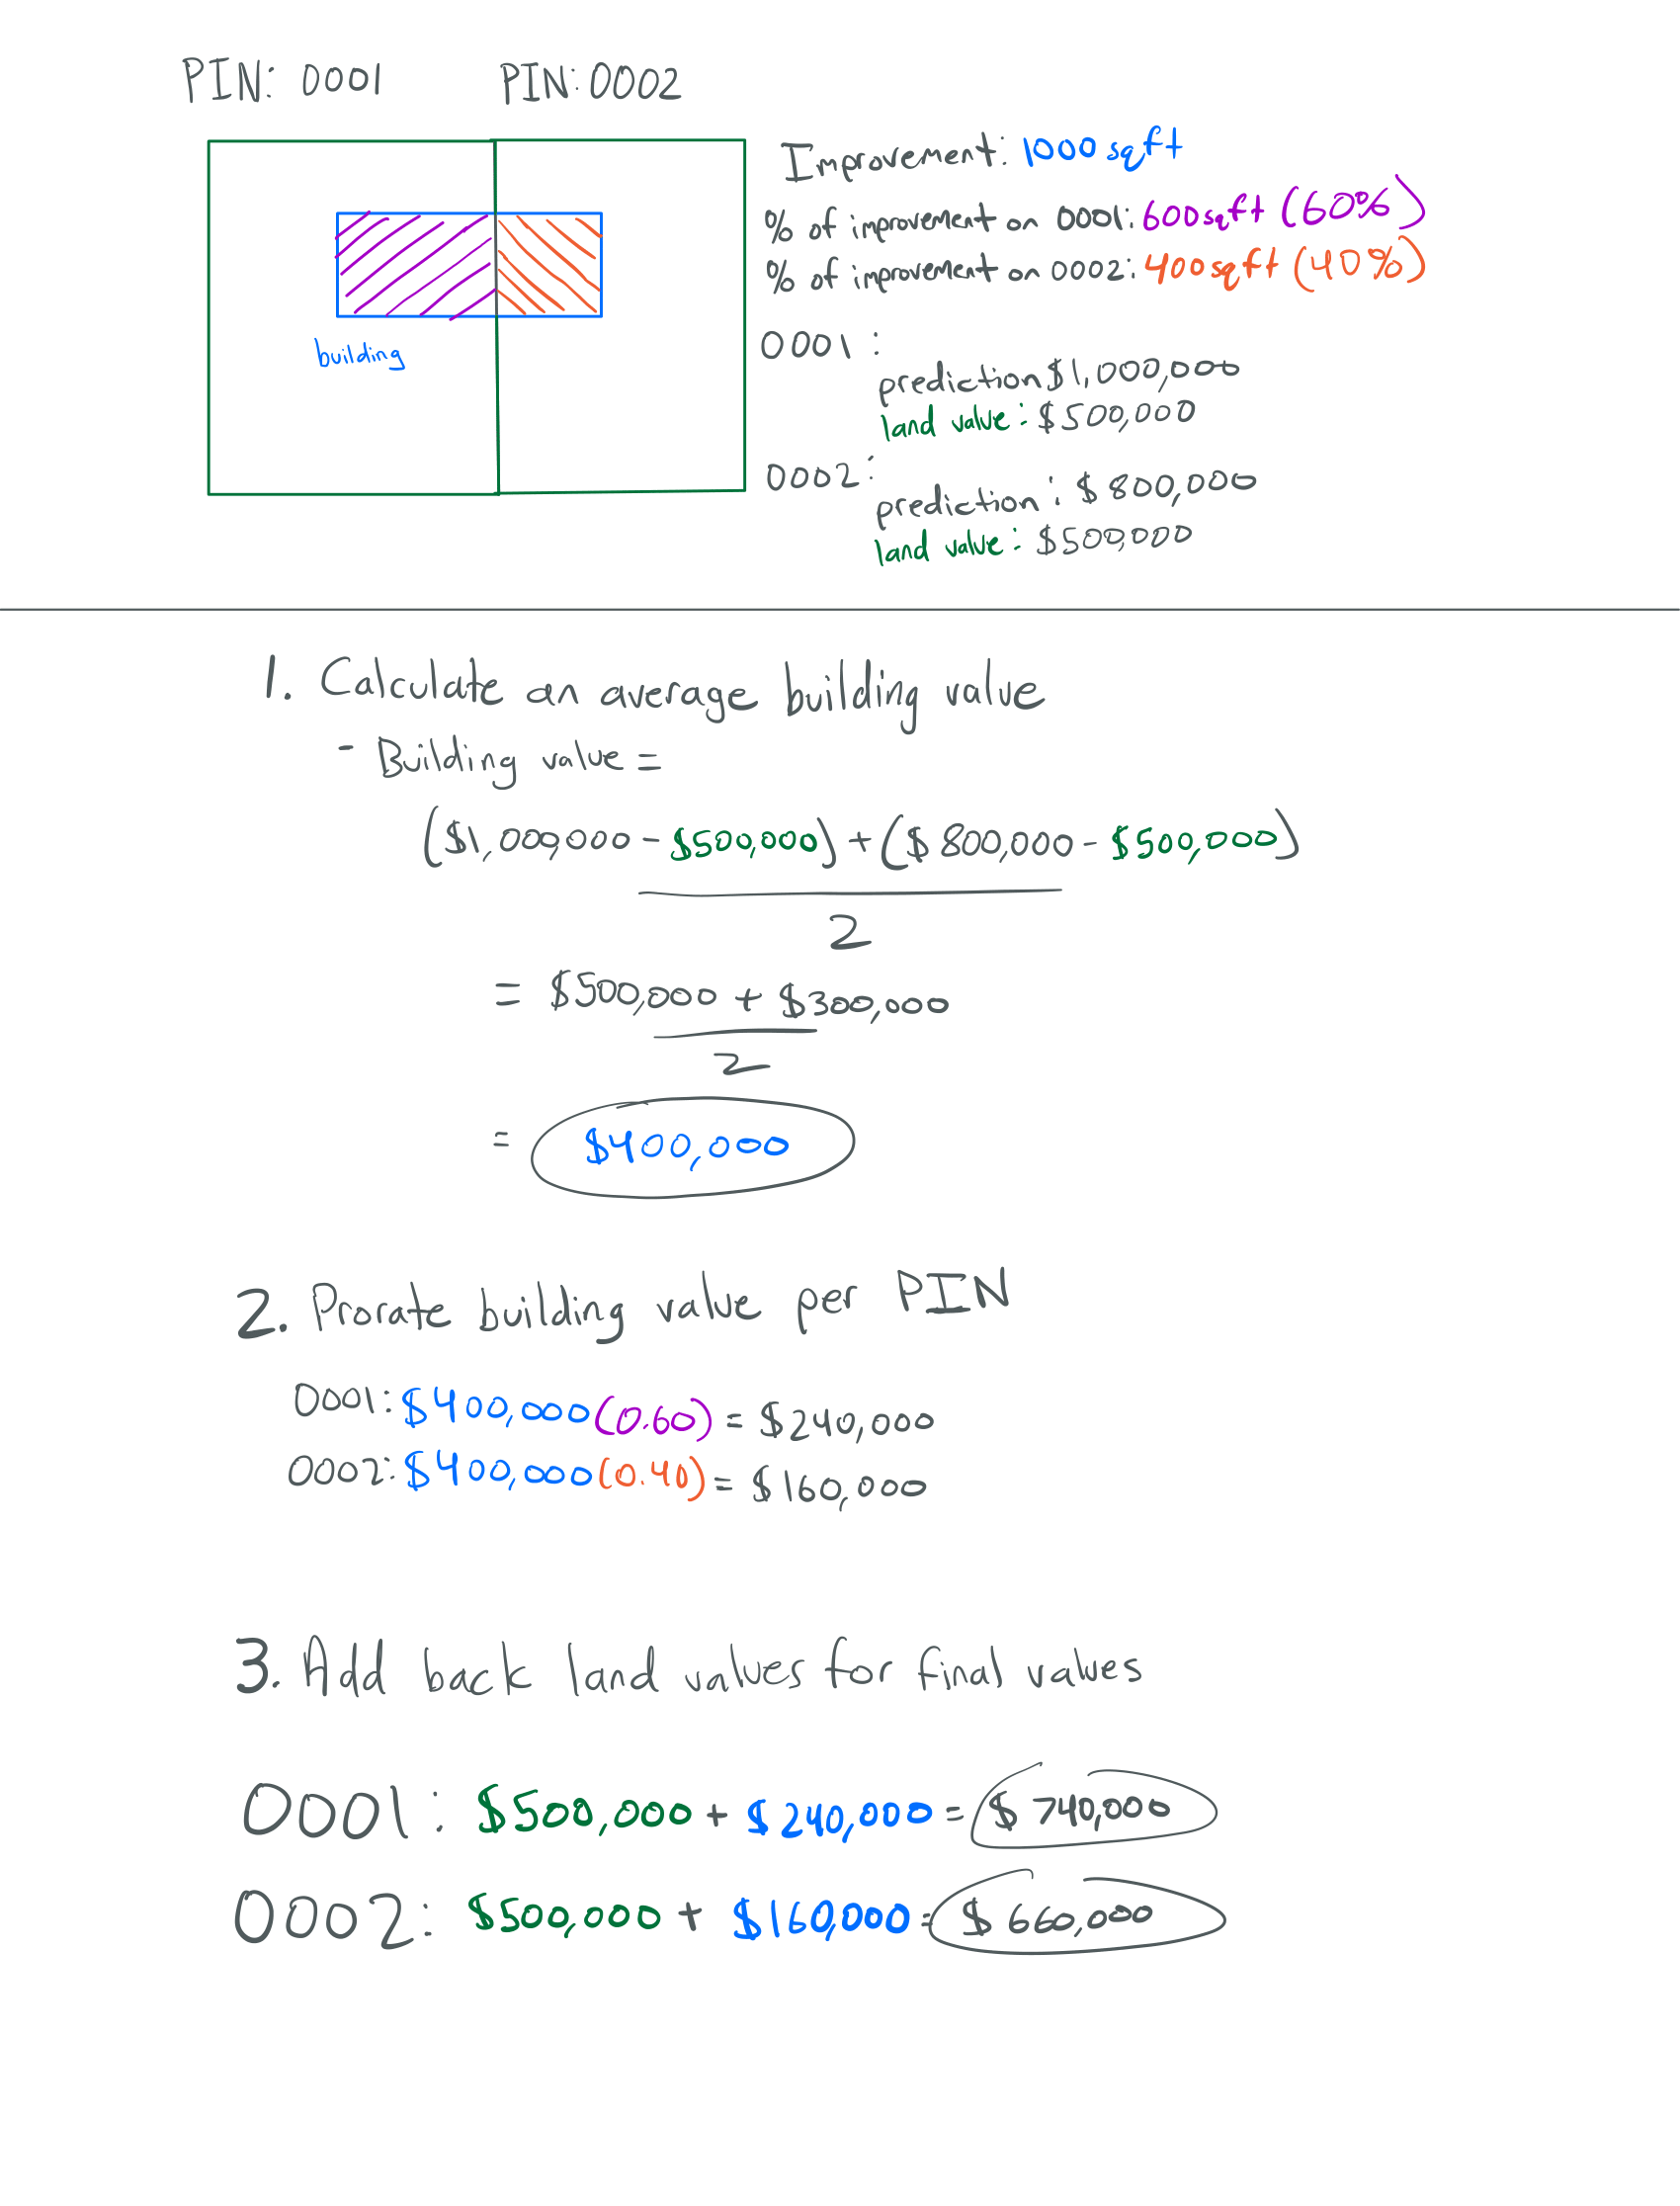 PIN: 0001
PIN: 0002
building
Improvement: 1000 sqft
% of improvement on 0001: 600 sqft (60%)
% of improvement on 0002: 400 sqft (40%)
0001:
prediction $1,000,000
land value: $500,000
0002:
prediction: $800,000
land value: $500,000
1. Calculate an average building value
- Building value =
($1,000,000 - $500,000) + ($800,000 - $500,000)
2
= $500,000 + $300,000
2
= $400,000
2. Prorate building value per PIN
0001: $400,000 (0.60) = $240,000
0002: $400,000 (0.40) = $160,000
3. Add back land values for final values
0001: $500,000 + $240,000 = $740,000
0002: $500,000 + $160,000 = $660,000